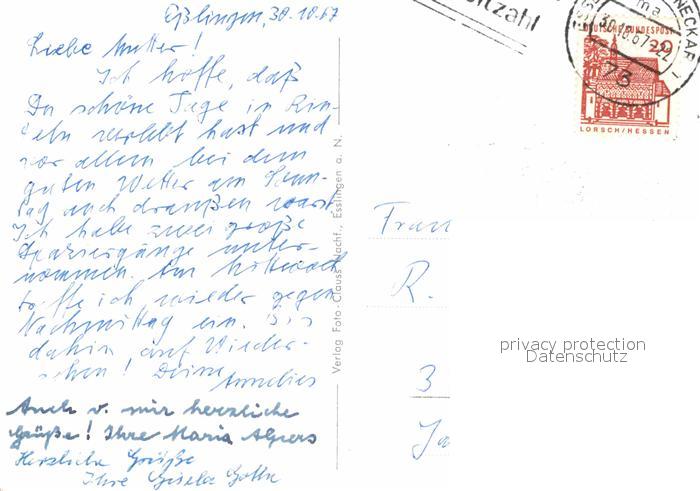 Eßlingen, 30.10.67
Liebe Mutter!
Ich hoffe, daß
Du schöne Tage in Rin-
teln verlebt hast und
vor allem bei dem
guten Wetter am Sonn-
tag auch draußen warst.
Ich habe zwei große
Spaziergänge unter-
nommen. Am Mittwoch
treffe ich wieder gegen
Nachmittag ein. Bis
dahin, auf Wieder-
sehen! Deine
Annelies
Auch v. mir herzliche
Grüße! Ihre Maria Alpers
Herzliche Grüße
Ihre Gisela
Verlag Foto-Clauss Nachf., Esslingen a. N.
NECKAR
30.10.67-22
73
DEUTSCHE BUNDESPOST
20
LORSCH/HESSEN
Frau
R.
3
Ja
privacy protection
Datenschutz